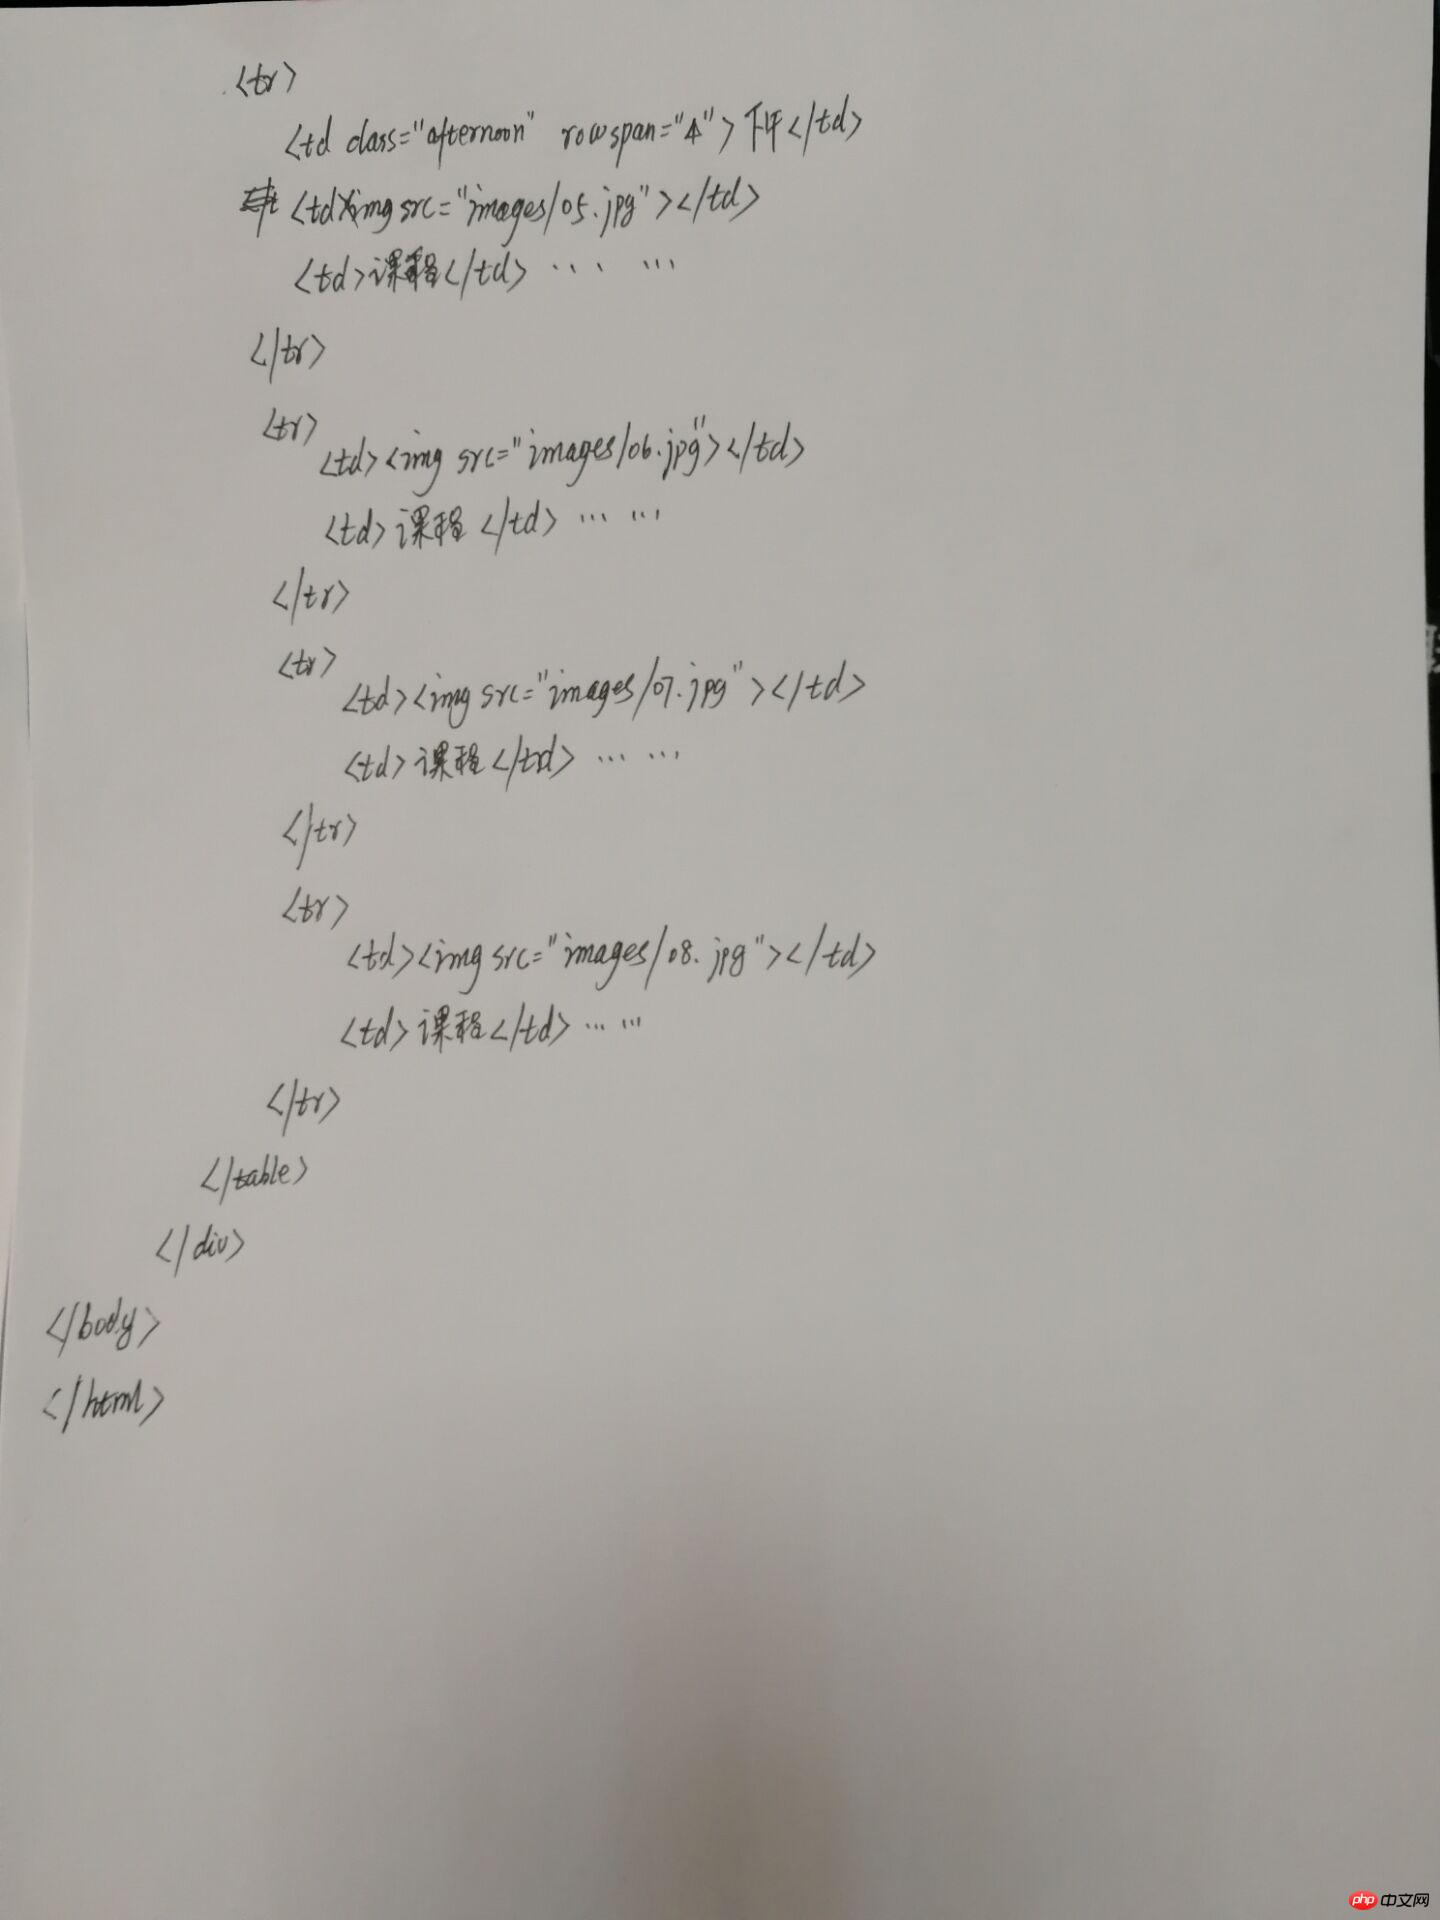 <tr>
<td class="afternoon" rowspan="4">下午</td>
<td><img src="images/05.jpg"></td>
<td>课程</td> ... ...
</tr>
<tr>
<td><img src="images/06.jpg"></td>
<td>课程</td> ... ...
</tr>
<tr>
<td><img src="images/07.jpg"></td>
<td>课程</td> ... ...
</tr>
<tr>
<td><img src="images/08.jpg"></td>
<td>课程</td> ... ...
</tr>
</table>
</div>
</body>
</html>
php 中文网